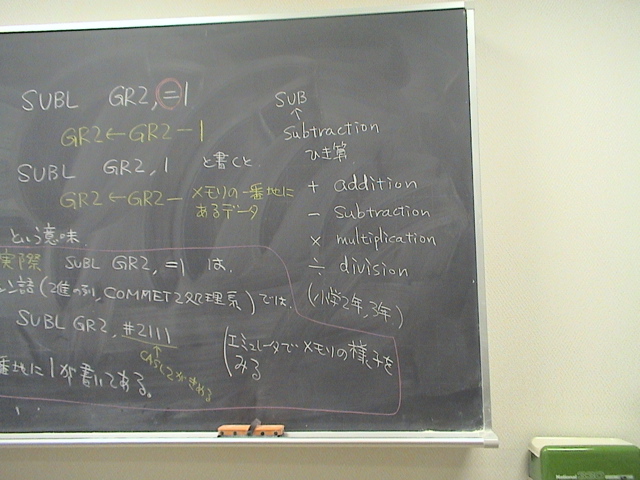 SUBL GR2,=1
GR2←GR2-1
SUBL GR2,1 と書くと
GR2←GR2- メモリの一番地に
あるデータ
という意味
実際 SUBL GR2,=1 は、
ン語(2進の列,COMMET2処理系)では、
SUBL GR2,#2111
↑
CASL2がきめる
番地に1が書いてある。
SUB
↑
Subtraction
ひき算
+ addition
- Subtraction
× multiplication
÷ division
(小学2年,3年)
(エミュレータでメモリの様子を
みる
National